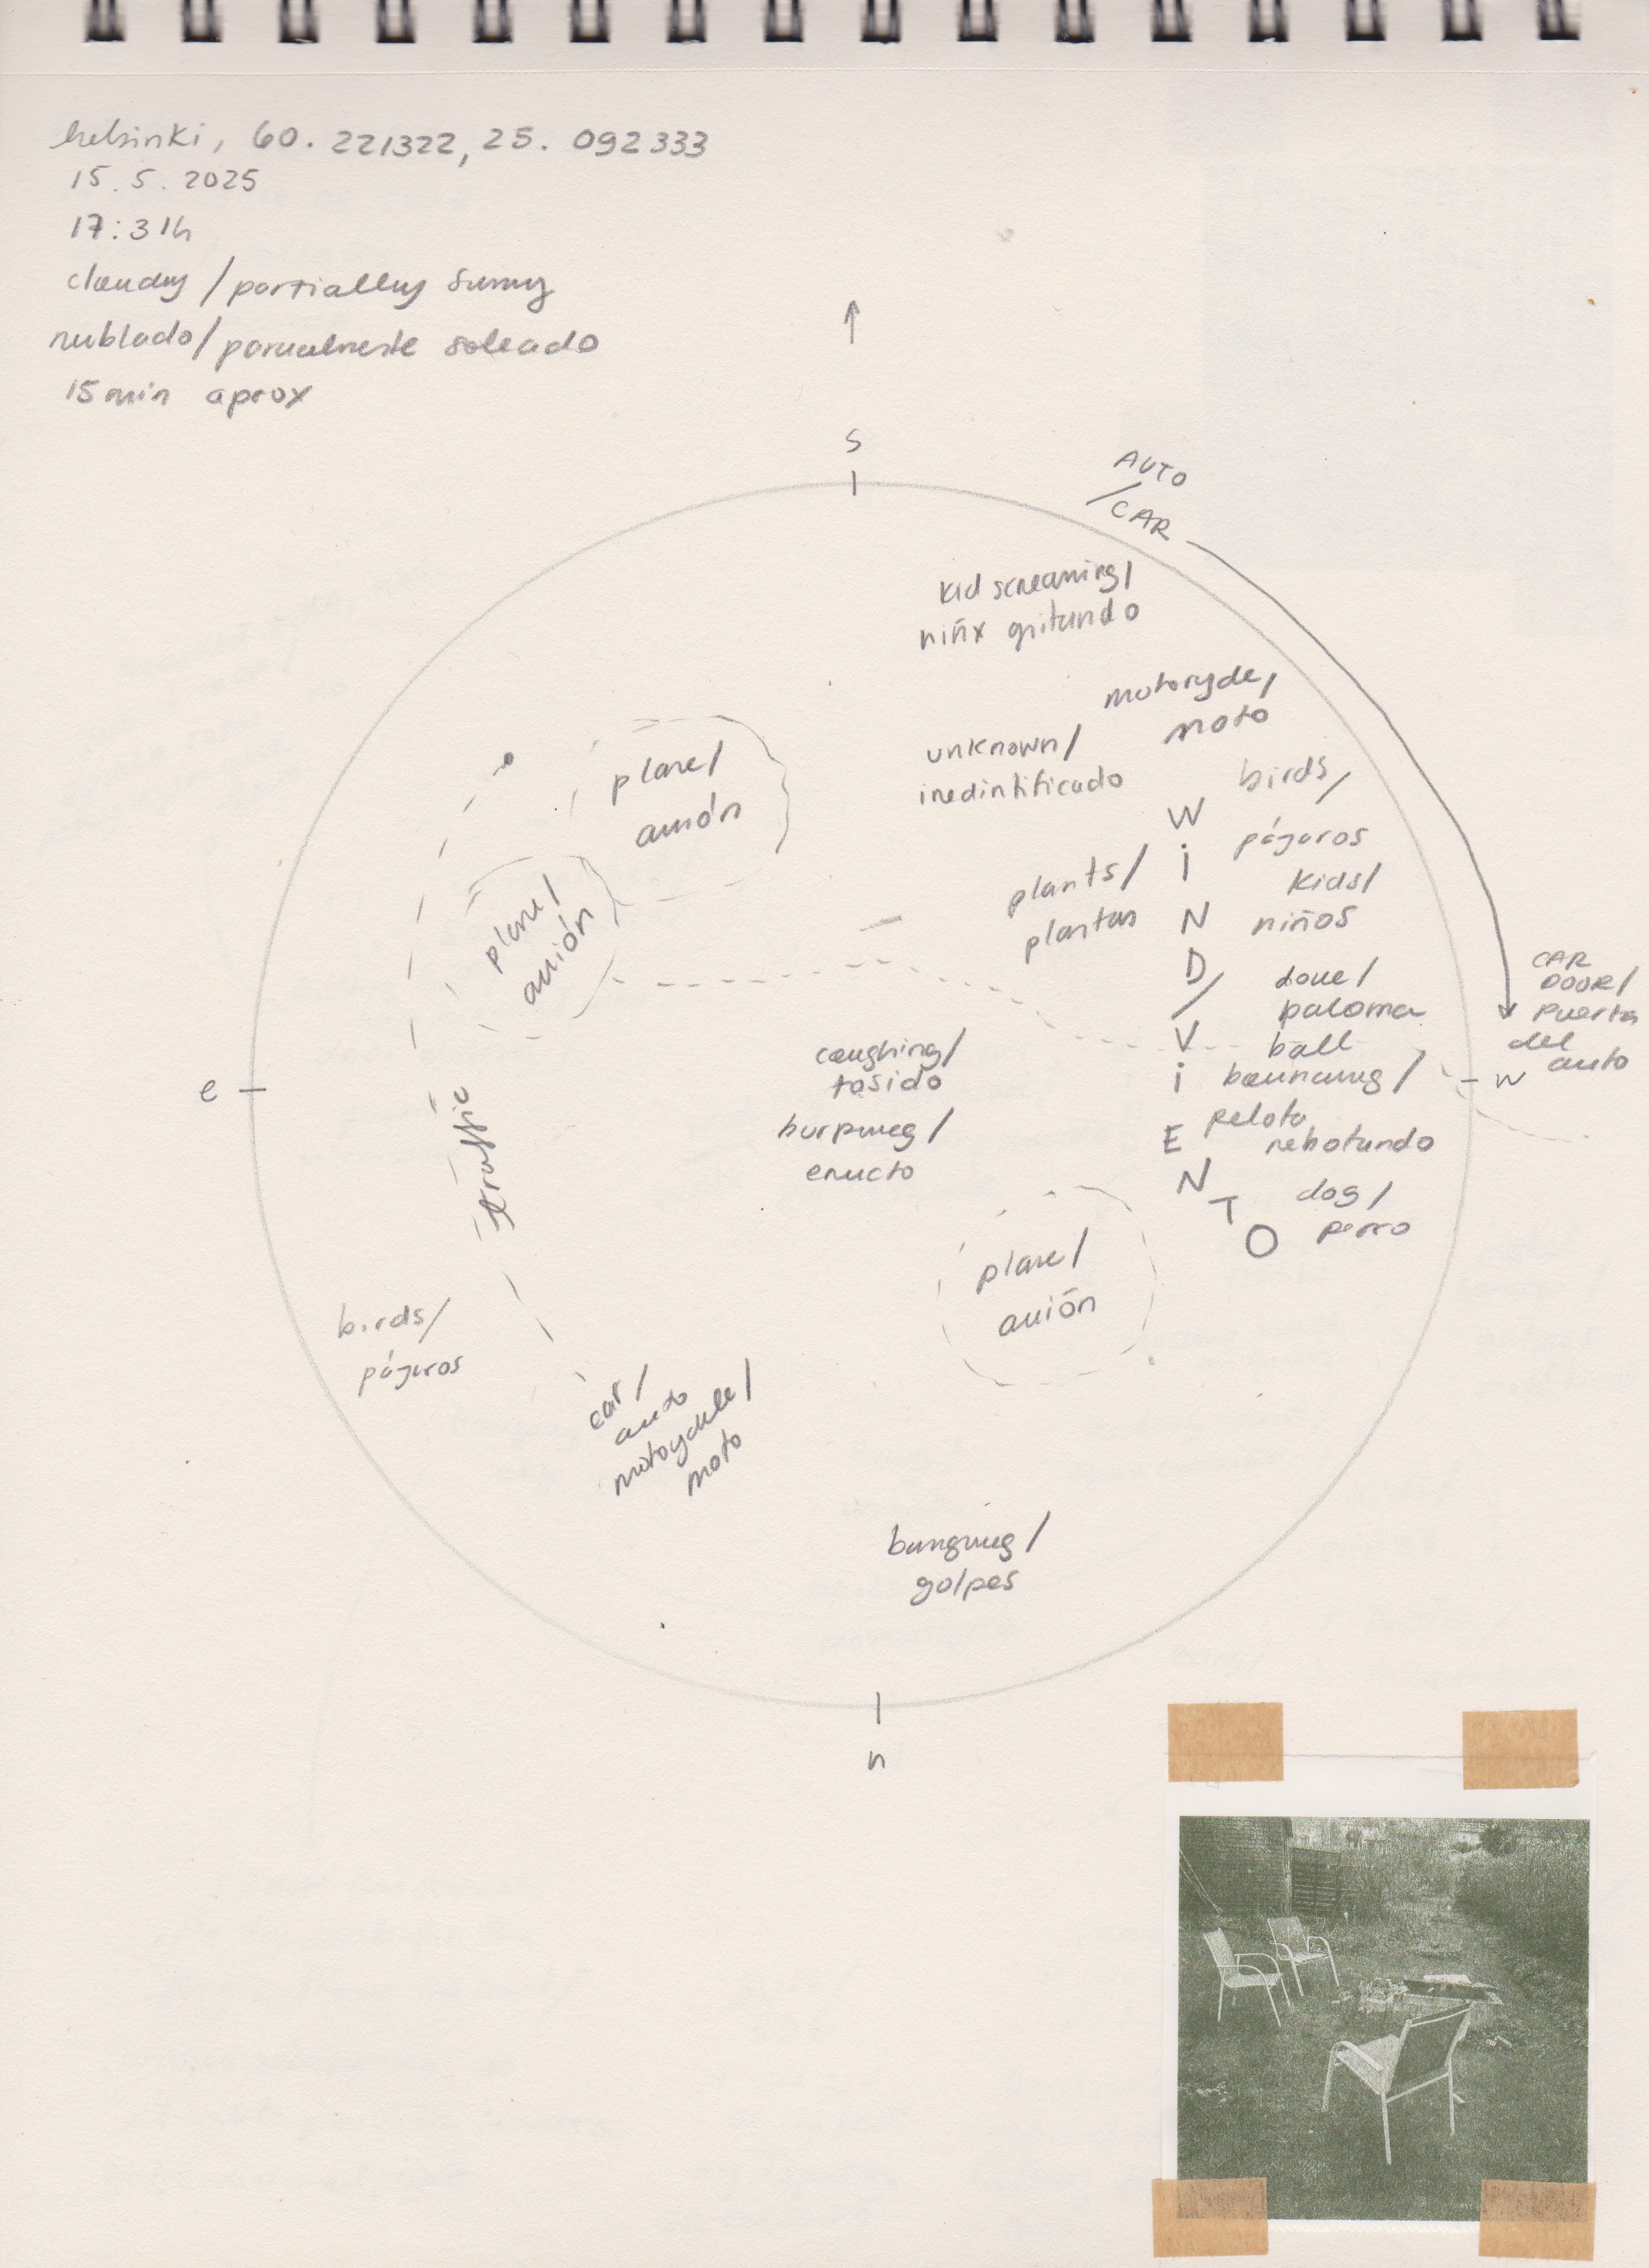 helsinki, 60. 221322, 25. 092333
15. 5. 2025
17:31h
cloudy / partially sunny
nublado / parcialmente soleado
15 min aprox
s
AUTO
/ CAR
kid screaming /
niñx gritando
motorycle /
moto
unknown /
inedintificado
birds /
pájaros
plane /
avión
WiND / ViENTO
kids /
niños
plants /
plantas
plane /
avión
dove /
paloma
CAR
DOOR /
puerta
del
auto
ball
bouncing /
pelota
rebotando
coughing /
tosido
e
w
traffic
burping /
eructo
dog /
perro
plane /
avión
birds /
pájaros
car /
auto
motorycle /
moto
banging /
golpes
n